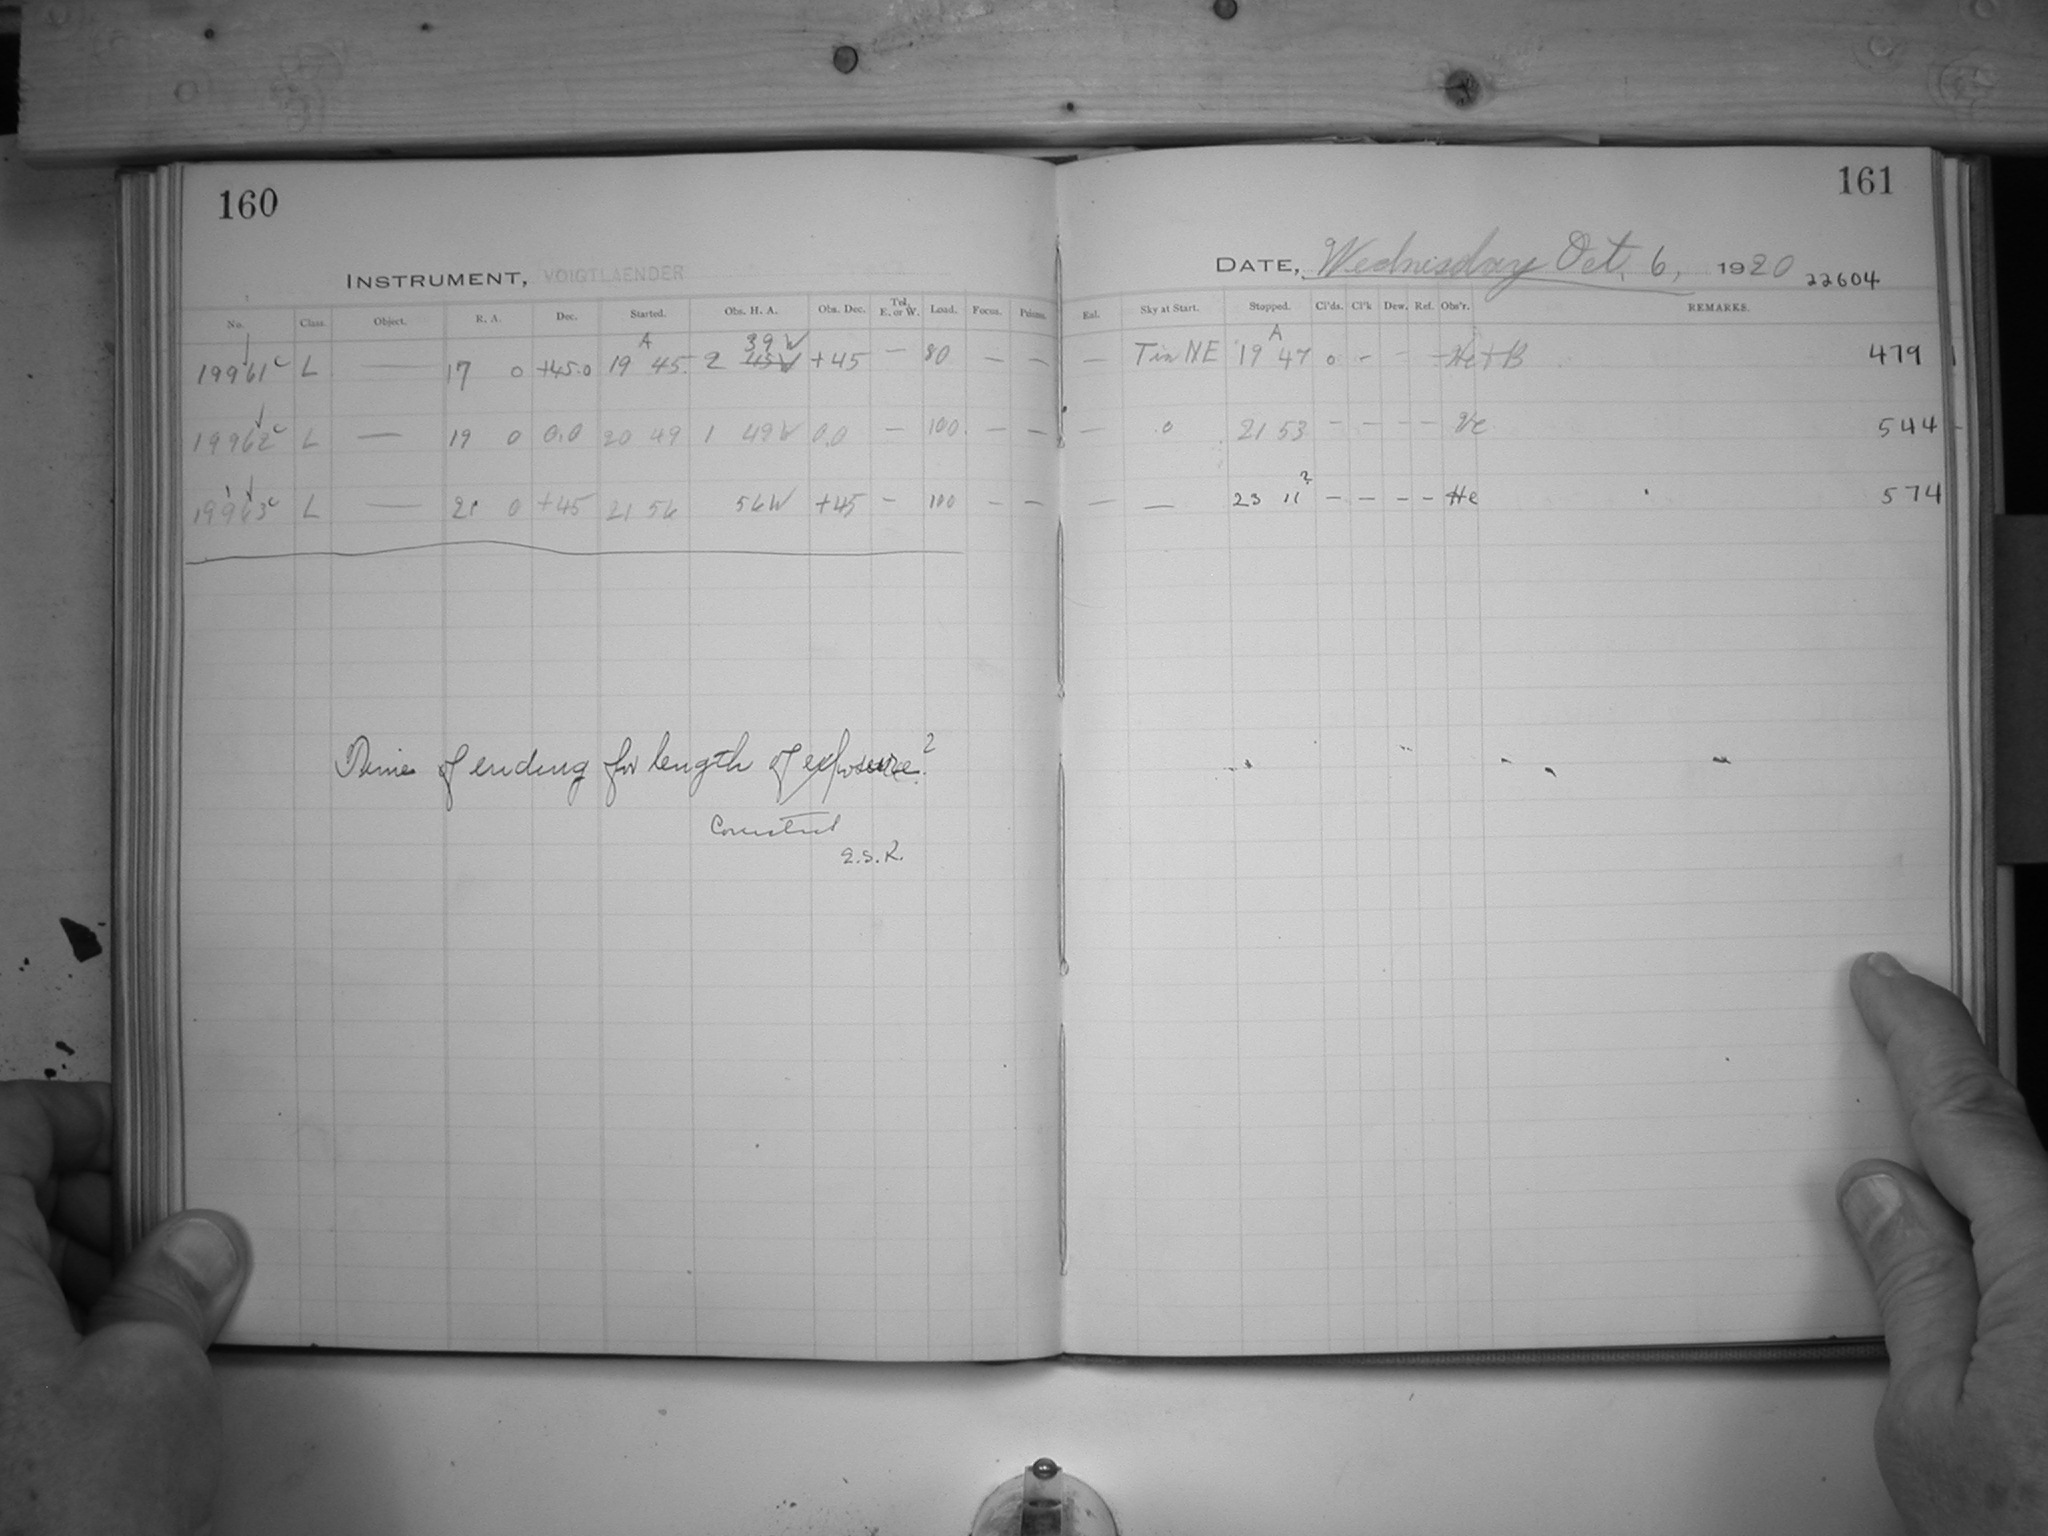 160
161
INSTRUMENT, VOIGTLAENDER
DATE, Wednesday Oct. 6, 1920 22604
No. Class. Object. R. A. Dec. Started. Obs. H. A. Obs. Dec. Tel. E. or W. Load. Focus. Prisms. Eal. Sky at Start. Stopped. Cl'ds. Cl'k Dew. Ref. Obs'r. REMARKS.
A 39 W A
19961c L — 17 0 +45.0 19 45 2 45W +45 — 80 — — — NE 19 47 0 - - — He + B 479
19962c L — 19 0 0.0 20 49 1 49W 0.0 — 100 — — — 0 21 53 - - - - He 544
19963c L — 21 0 +45 21 56 56W +45 - 100 — — — — 23 11? - - - - He 574
Time of ending for length of exposure?
Corrected
E.S.R.